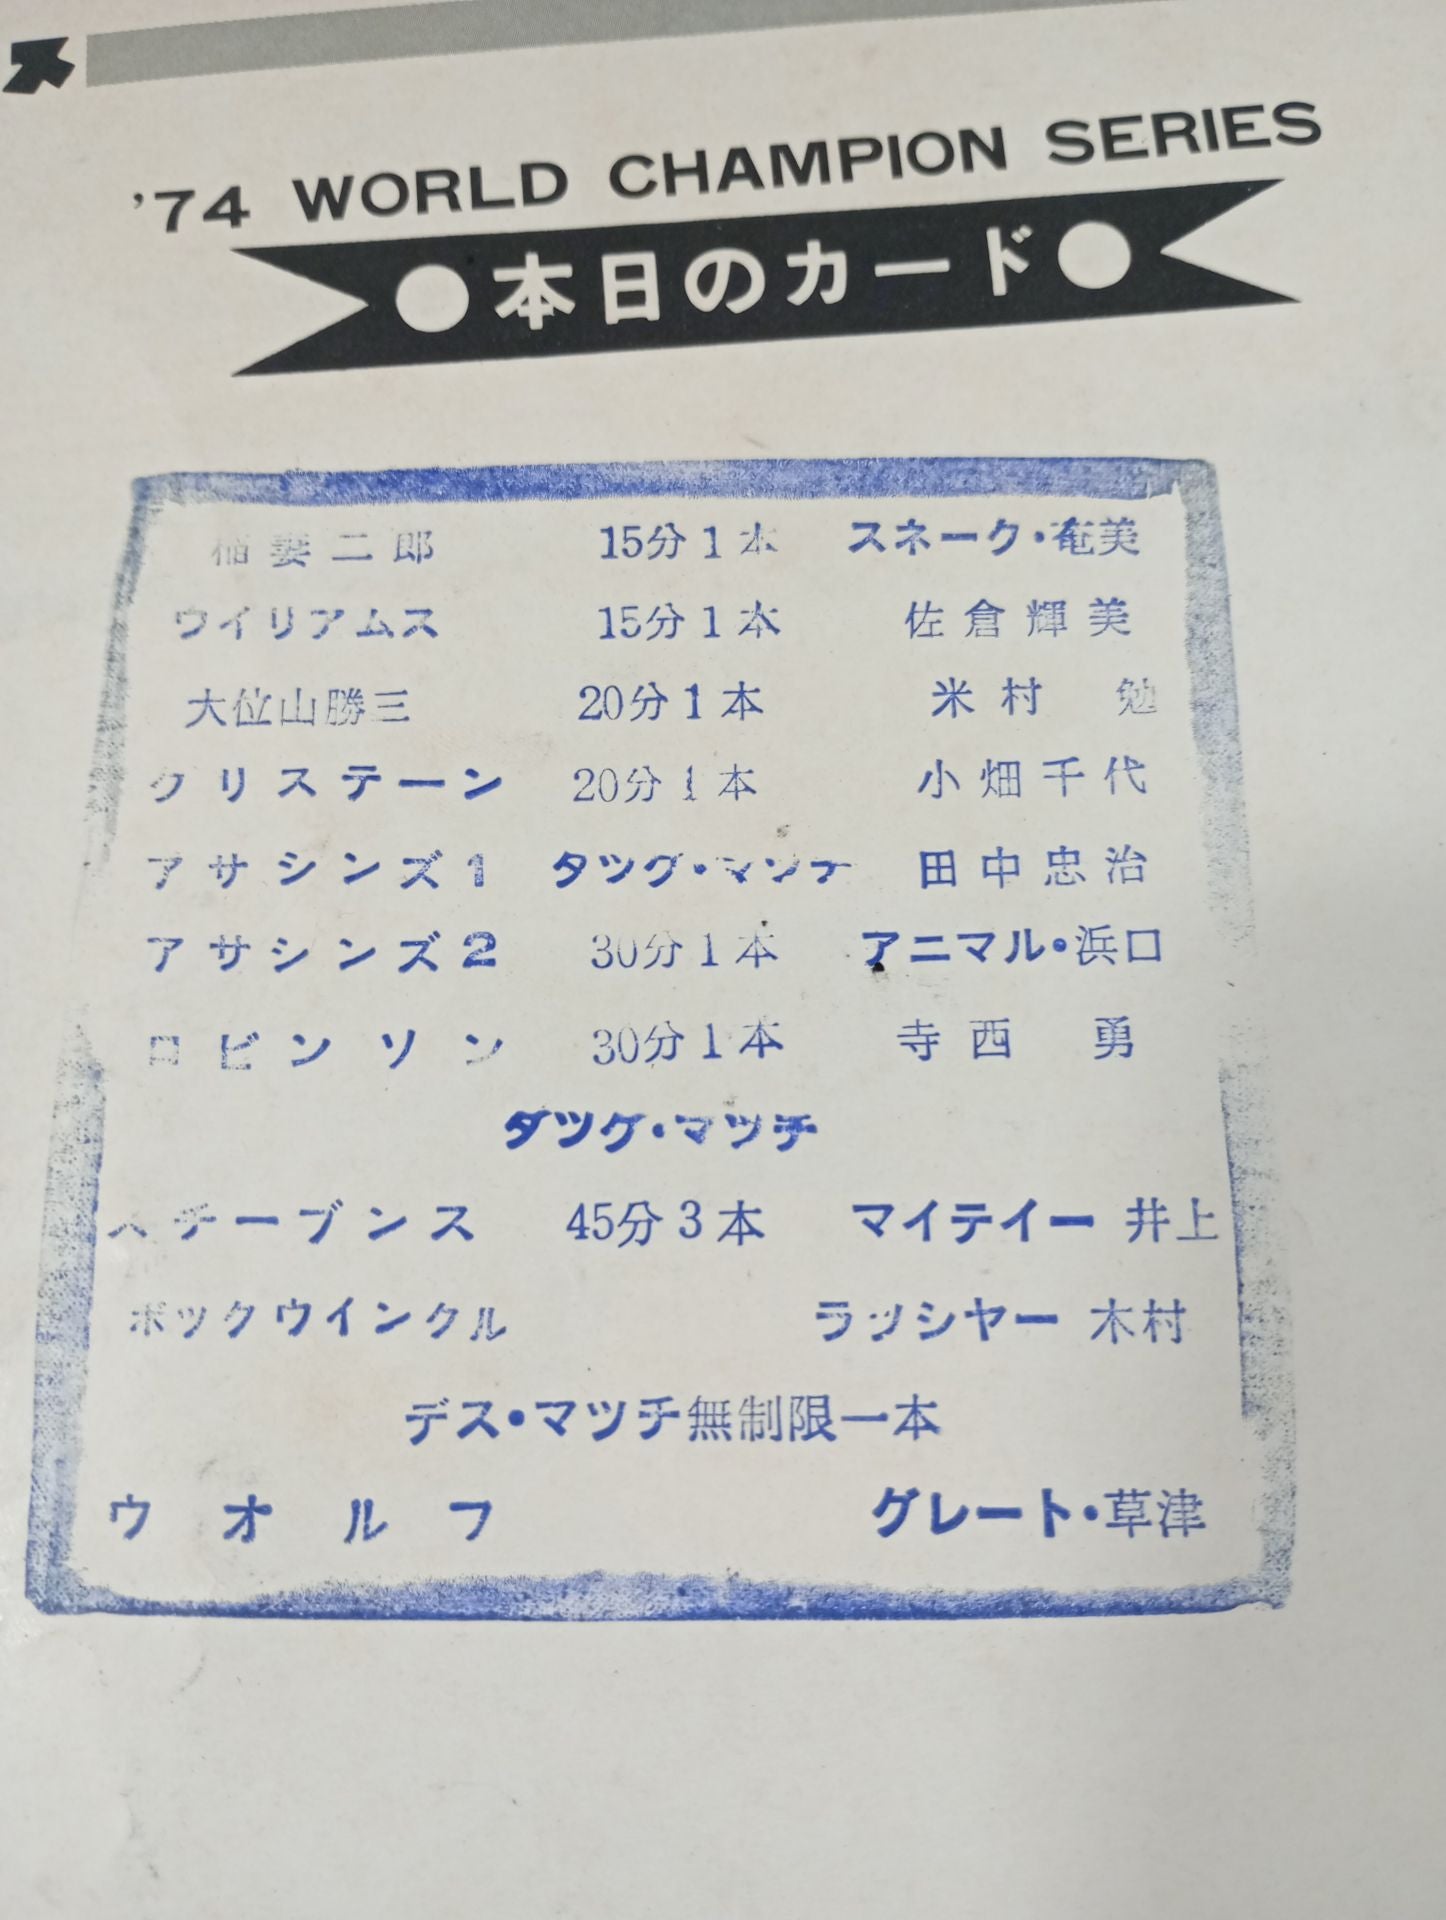 '74 WORLD CHAMPION SERIES
●本日のカード●
稲妻二郎 15分1本 スネーク・奄美
ウイリアムス 15分1本 佐倉輝美
大位山勝三 20分1本 米村 勉
クリステーン 20分1本 小畑千代
アサシンズ1 タツグ・マツチ 田中忠治
アサシンズ2 30分1本 アニマル・浜口
ロビンソン 30分1本 寺西 勇
タツグ・マツチ
スチーブンス 45分3本 マイテイー 井上
ボックウインクル ラッシヤー 木村
デス・マツチ無制限一本
ウオルフ グレート・草津